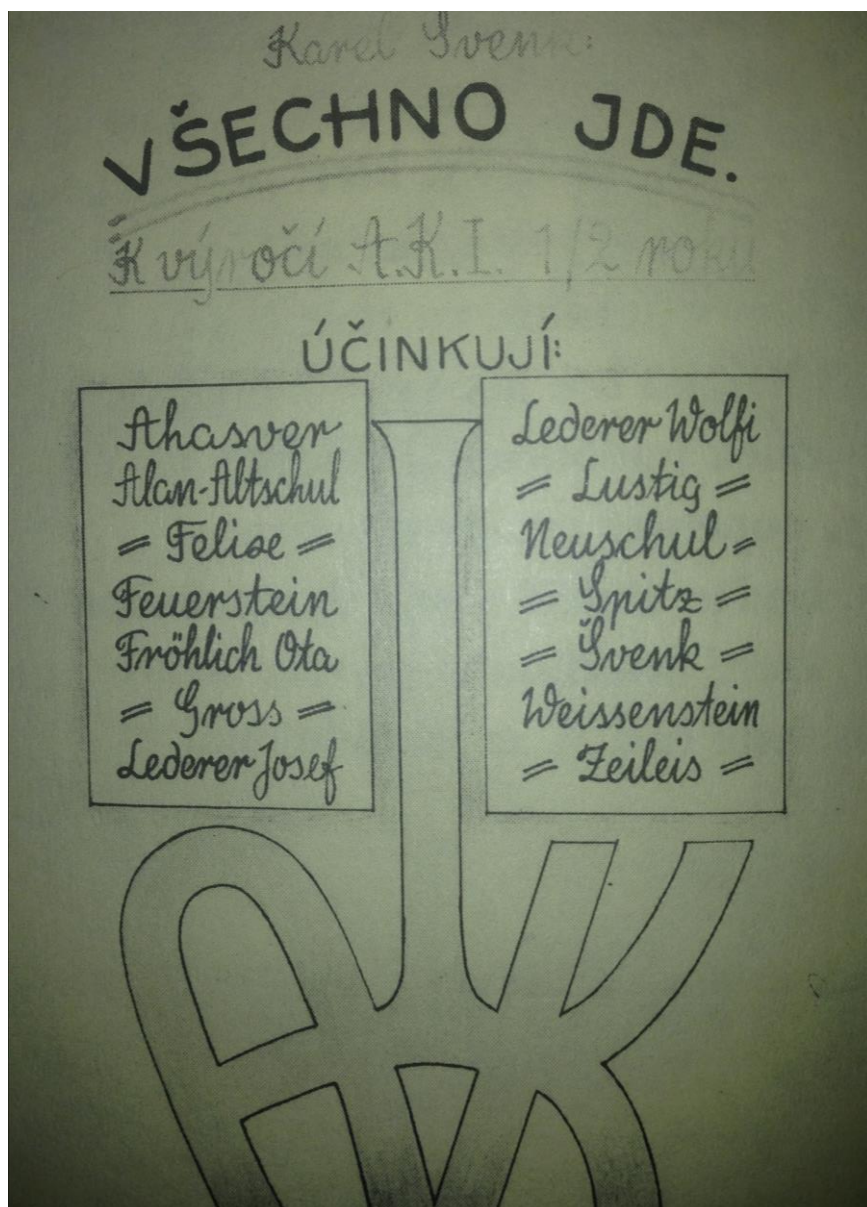 Karel Švenk:
VŠECHNO JDE.
K výročí A.K.I. 1/2 roku
ÚČINKUJÍ:
Ahasver
Alan-Altschul
= Felixe =
Feuerstein
Fröhlich Ota
= Gross =
Lederer Josef
Lederer Wolfi
= Lustig =
Neuschul =
= Spitz =
= Švenk =
Weissenstein
= Zeileis =
AK